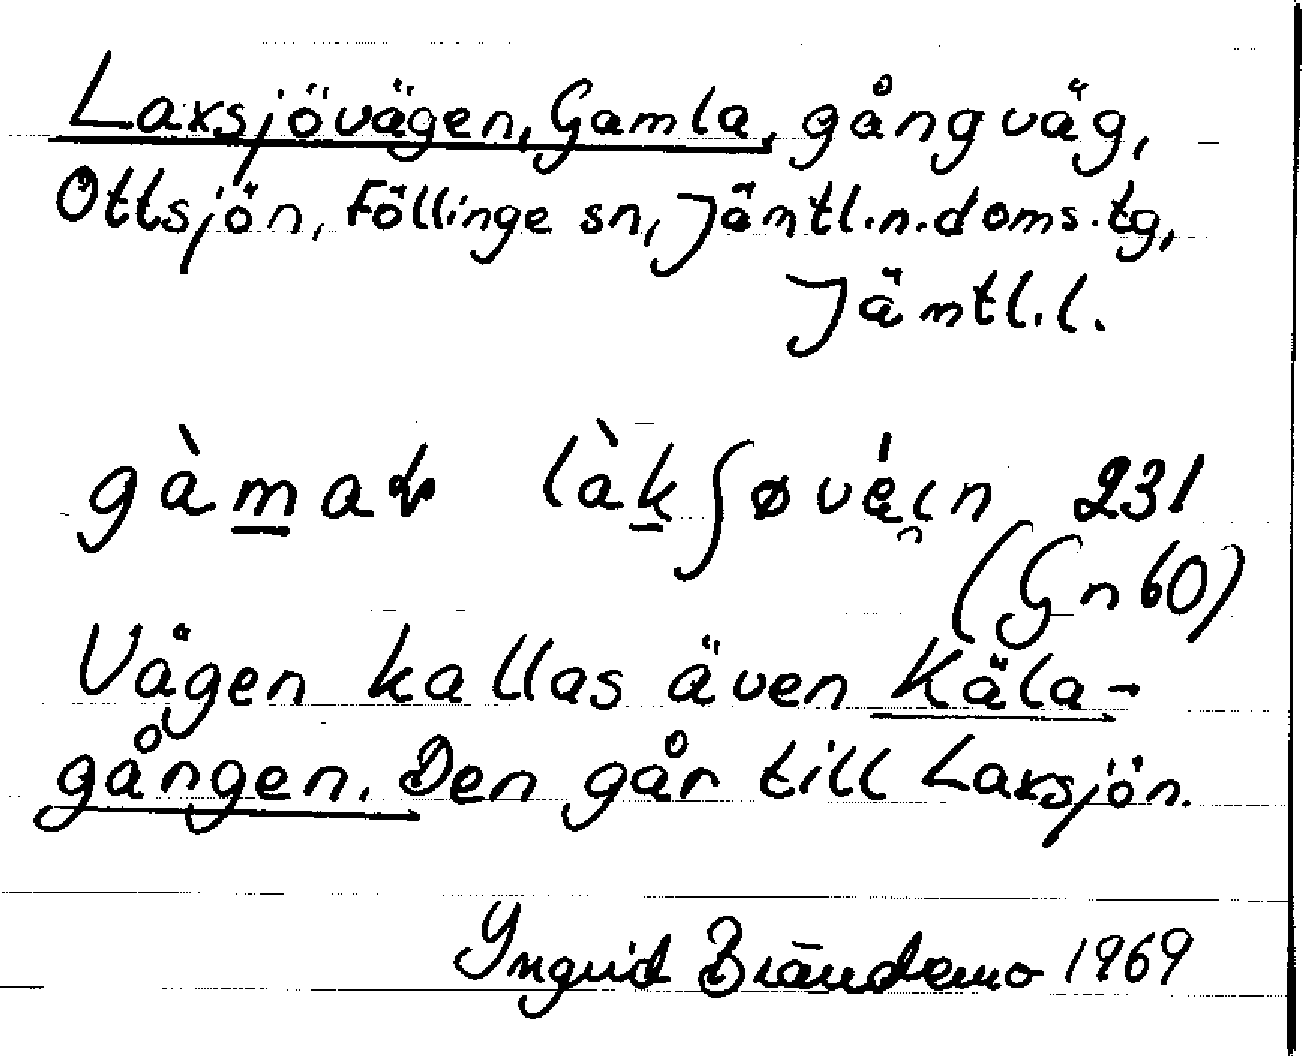 Laxsjövägen, Gamla, gångväg,
Ottsjön, Föllinge sn, Jämtl.n.doms.tg,
Jämtl.l.
gàmaɫ làkʃøvein 231
(Gn 60)
Vägen kallas även Käla-
gången. Den går till Laxsjön.
Yngvid Brändemo 1969